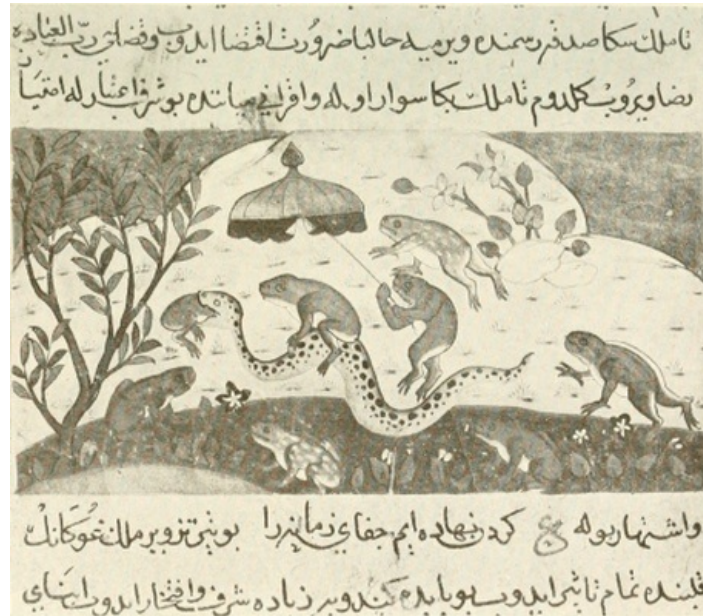 تا ملك سكا صدقه رسمنده ويرميه حالبا ضرورت اقتضا ايدوب وقضاي ربّ العباده
رضا ويروب كلدوم تا ملك بكا سوار اوله واقراني ميانده بو شرف اعتبار له امتياز
واشتهار بوله ع كردن نهاده ايم جفاي زمانه را بو نير تزوير ملك غوكانك
قلبنده تمام تاثير ايدوب بو بابده كندويه زياده شرف وافتخار ايدوب ابناي